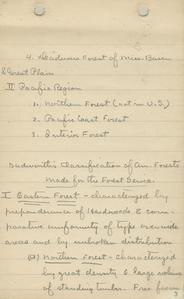 4. Hardwood Forest of Miss. Basin
& Great Plain
II Pacific Region
1. Northern Forest (not in U.S.)
2. Pacific Coast Forest
3. Interior Forest
Sudworth's Classification of Am. Forests
Made for the Forest Service.
I Eastern Forest - characterized by
preponderance of Hardwoods & com-
parative uniformity of type over wide
areas and by unbroken distribution
(a) Northern Forest - characterized
by great density & large volume
of standing timber. Free from